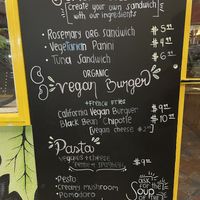 create your own sandwich
with our ingredients
• Rosemary org sandwich $5
• Vegetarian Panini $4
• Tuna Sandwich $6
ORGANIC
Vegan Burger
+French Fries
California Vegan Burger $9
Black Bean Chipotle $10
(vegan cheese $2)
Pasta
veggies + cheese
penne or spaghetti $9
• Pesto
• Creamy Mushroom
• Pomodoro
ask
for the
Soup
of the